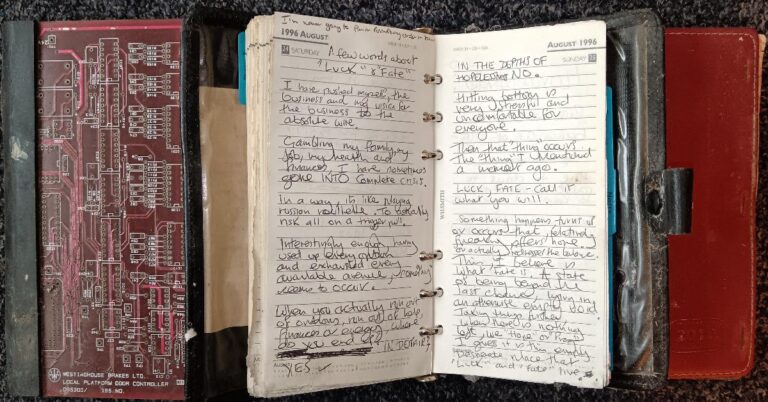 WESTINGHOUSE BRAKES LTD.
LOCAL PLATFORM DOOR CONTROLLER
ISS NO.
I'm never going to
1996 AUGUST
24 SATURDAY
A few words about
"LUCK" & "Fate"
I have pushed myself, the
business and my voice for
the business to the
absolute wire.
Gambling my family, my
job, my health and
finances. I have sometimes
gone INTO COMPLETE CRISIS.
In a way, its like playing
russian roullette. To totally
risk all on a trigger pull.
Interestingly enough having
used up every option
and exhausted every
available avenue, something
seems to occur.
When you actually run out
of options, run out of help,
finances or energy, where
do you end up?
IN DEPTH!
YES ✓
AUGUST 1996
SUNDAY 25
IN THE DEPTHS OF
HOPELESSNESS NO.
Hitting bottom is
very stressful and
uncomfortable for
everyone.
Then that "thing" occurs
The "thing" I mentioned
a moment ago.
LUCK, FATE - call it
what you will.
Something happens, turns up
or occurs that relatively
speaking offers hope
or actually addresses the balance.
This I believe is
what fate is. A state
of being beyond the
last chance, lying in
an otherwise empty void
Taking things further
when there is nothing
left, like hope or
I guess it is in an empty
desperate place that
"Luck" and "Fate" live.
WILLSMITH